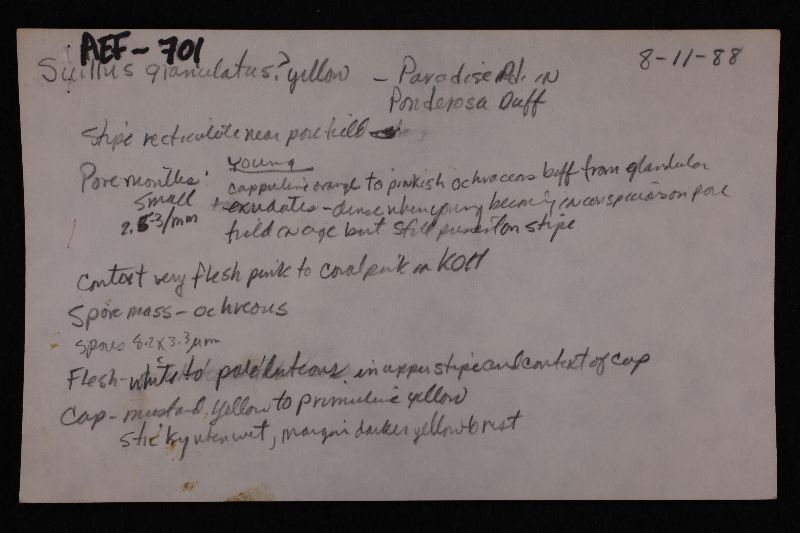 AEF-701
8-11-88
Suillus granulatus? yellow - Paradise Rd. in
Ponderosa Duff
Stipe recticulate near pore field
Pore mouths: Young
small cappuline orange to pinkish ochraceous buff from glandular
2.5-3/mm exudates - dense when young becoming inconspicuous on pore
field in age but still present on stipe
Context very flesh pink to coral pink in KOH
Spore mass - ochreous
Spores 8.2 x 3.3 µm
Flesh - white to pale luteous in upper stipe and context of cap
Cap - mustard yellow to primuline yellow
sticky when wet, margin darker yellow